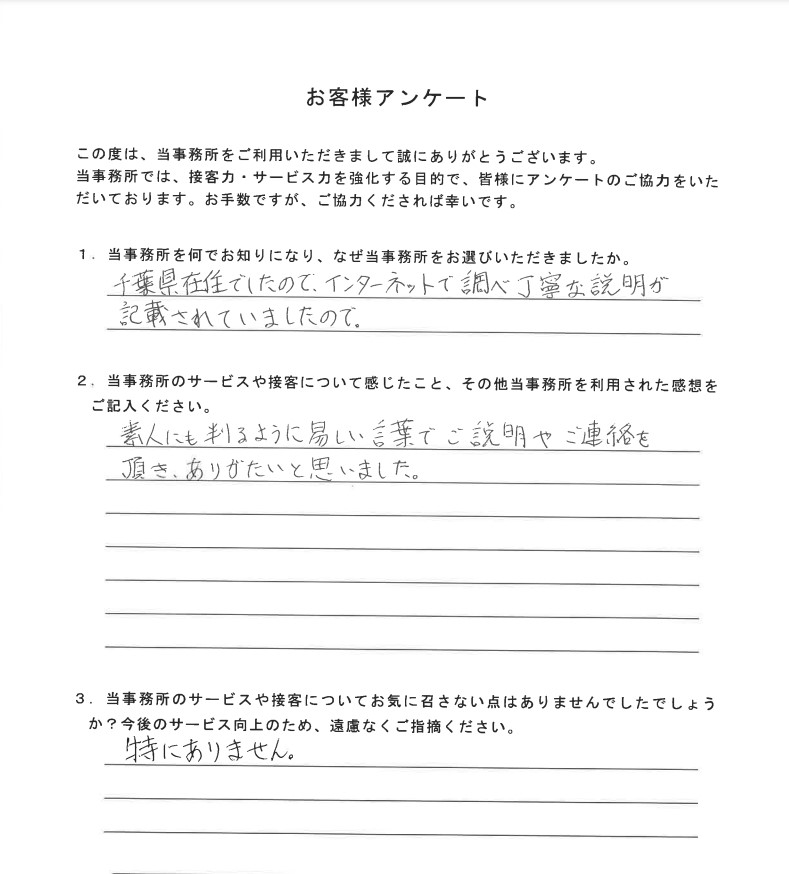 お客様アンケート
この度は、当事務所をご利用いただきまして誠にありがとうございます。
当事務所では、接客力・サービス力を強化する目的で、皆様にアンケートのご協力をいた
だいております。お手数ですが、ご協力くだされば幸いです。
１．当事務所を何でお知りになり、なぜ当事務所をお選びいただきましたか。
千葉県在住でしたので、インターネットで調べ丁寧な説明が
記載されていましたので。
２．当事務所のサービスや接客について感じたこと、その他当事務所を利用された感想を
ご記入ください。
素人にも判るように易しい言葉でご説明やご連絡を
頂き、ありがたいと思いました。
３．当事務所のサービスや接客についてお気に召さない点はありませんでしたでしょう
か？今後のサービス向上のため、遠慮なくご指摘ください。
特にありません。